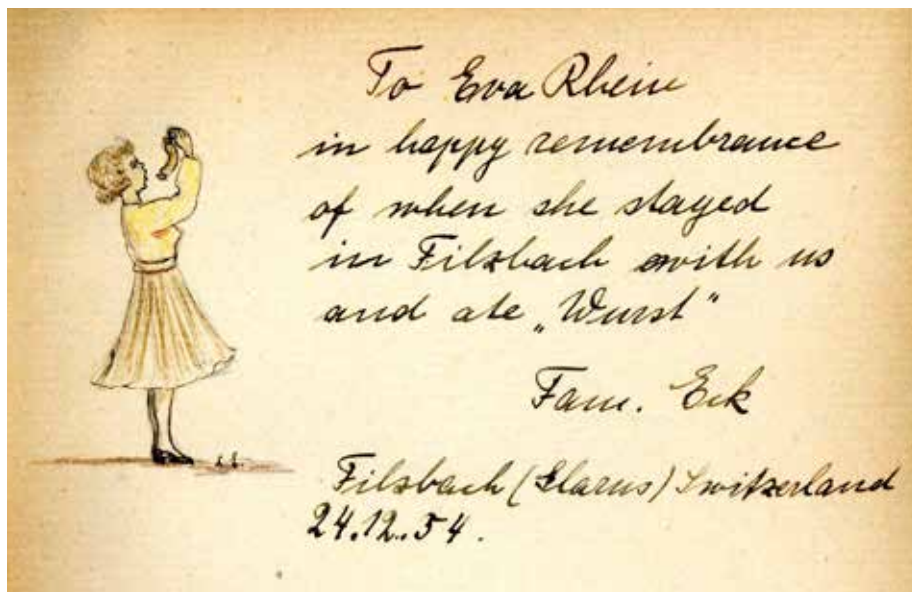 To Eva Rhein
in happy remembrance
of when she stayed
in Filzbach with us
and ate „Wurst"
Fam. Eck
Filzbach (Glarus) Switzerland
24.12.54.